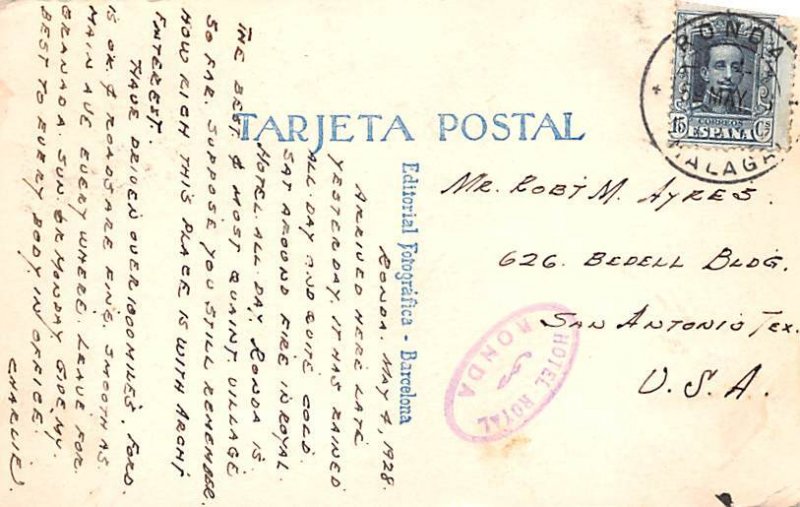 TARJETA POSTAL
Editorial Fotográfica - Barcelona
RONDA. MAY 4, 1928.
ARRIVED HERE LATE
YESTERDAY. IT HAS RAINED
ALL DAY AND QUITE COLD.
SAT AROUND FIRE IN ROYAL
HOTEL ALL DAY. RONDA IS
THE BEST & MOST QUAINT VILLAGE
SO FAR. SUPPOSE YOU STILL REMEMBER
HOW RICH THIS PLACE IS WITH ARCHT
INTEREST.
HAVE DRIVEN OVER 1800 MILES. FORD
IS OK. & ROADS ARE FINE. SMOOTH AS
MAIN AVE EVERY WHERE. LEAVE FOR
GRANADA. SUN. OR MONDAY. GIVE MY
BEST TO EVERY BODY IN OFFICE.
CHARLIE
MR. ROBT M. AYRES.
626. BEDELL BLDG.
SAN ANTONIO TEX.
U.S.A.
HOTEL ROYAL
RONDA
RONDA
MAY
MALAGA
CORREOS
15 ESPAÑA Cs